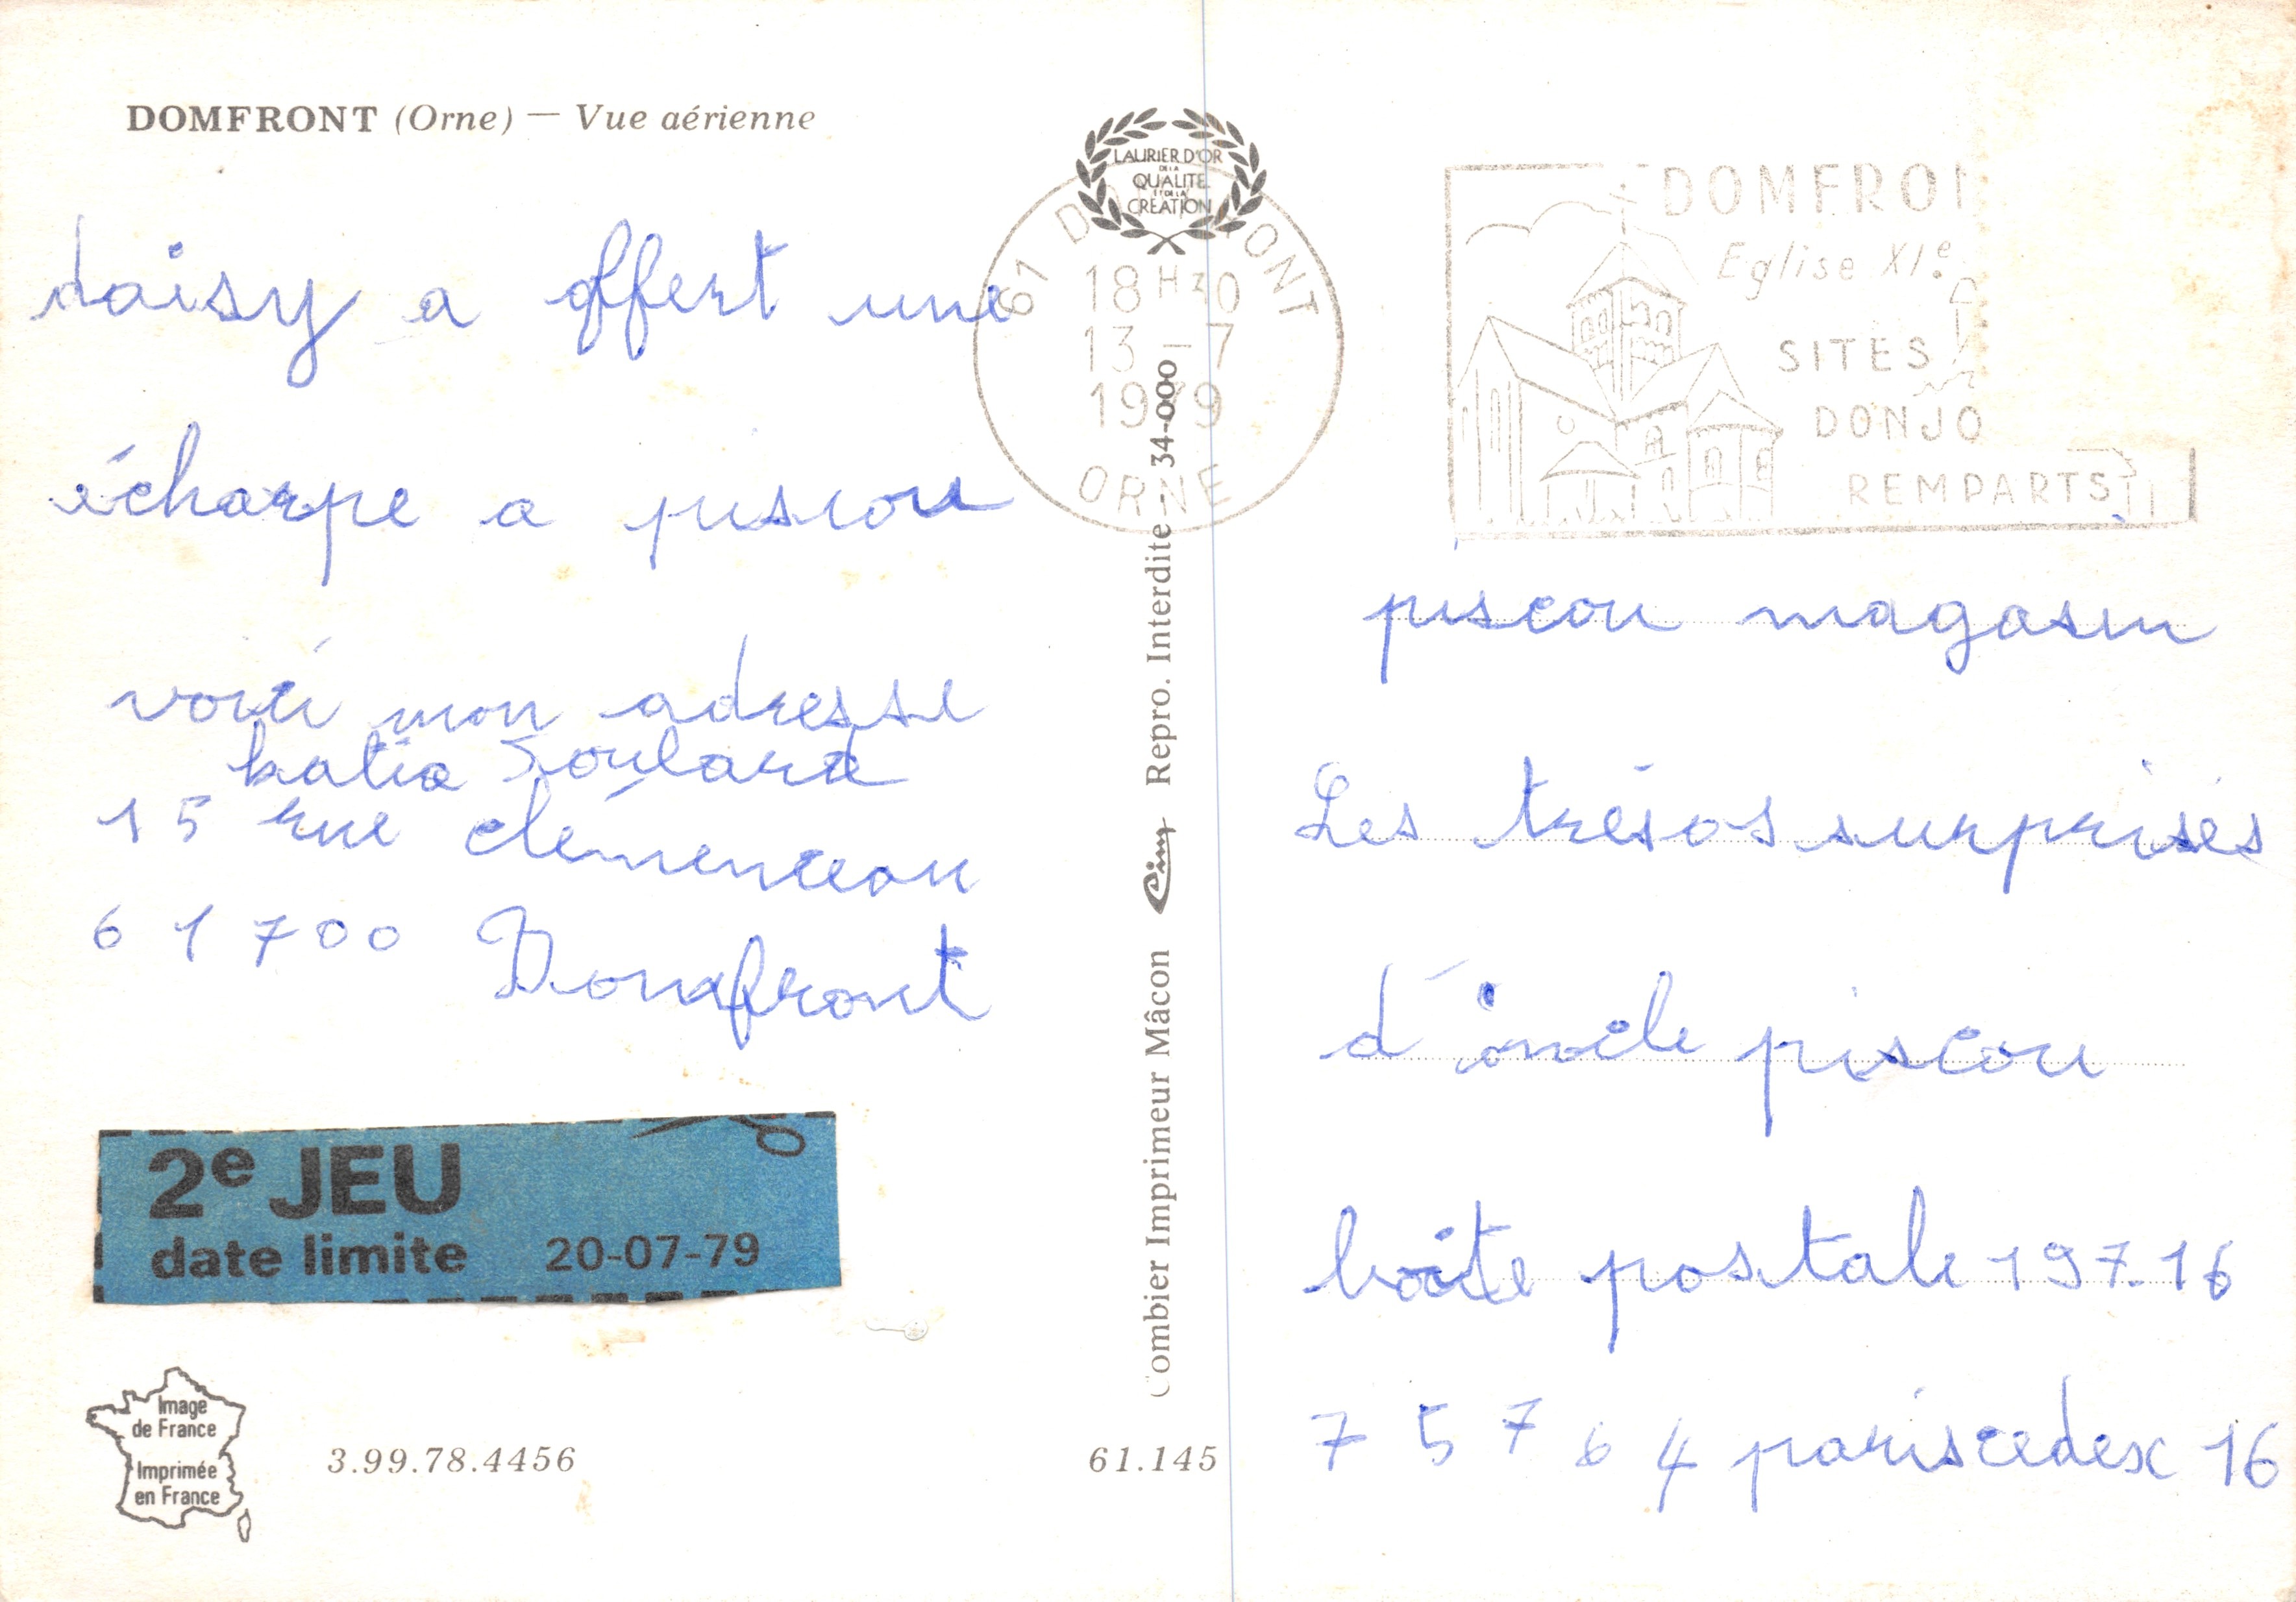 DOMFRONT (Orne) — Vue aérienne
daisy a offert une
écharpe a piscou
voici mon adresse
katia Soulard
15 rue clémenceau
61700 Domfront
2e JEU
date limite 20-07-79
Image
de France
Imprimée
en France
3.99.78.4456
61.145
Combier Imprimeur Mâcon Cim Repro. Interdite - 34-000
LAURIER D'OR
DE LA
QUALITE
ET DE LA
CREATION
61 DOMFRONT
18 H 30
13 - 7
1979
ORNE
DOMFRON
Eglise XIe
SITES
DONJO
REMPARTS
piscou magasin
Les trésos surprises
d'oncle piscou
boîte postale 197.16
75764 paris cedex 16